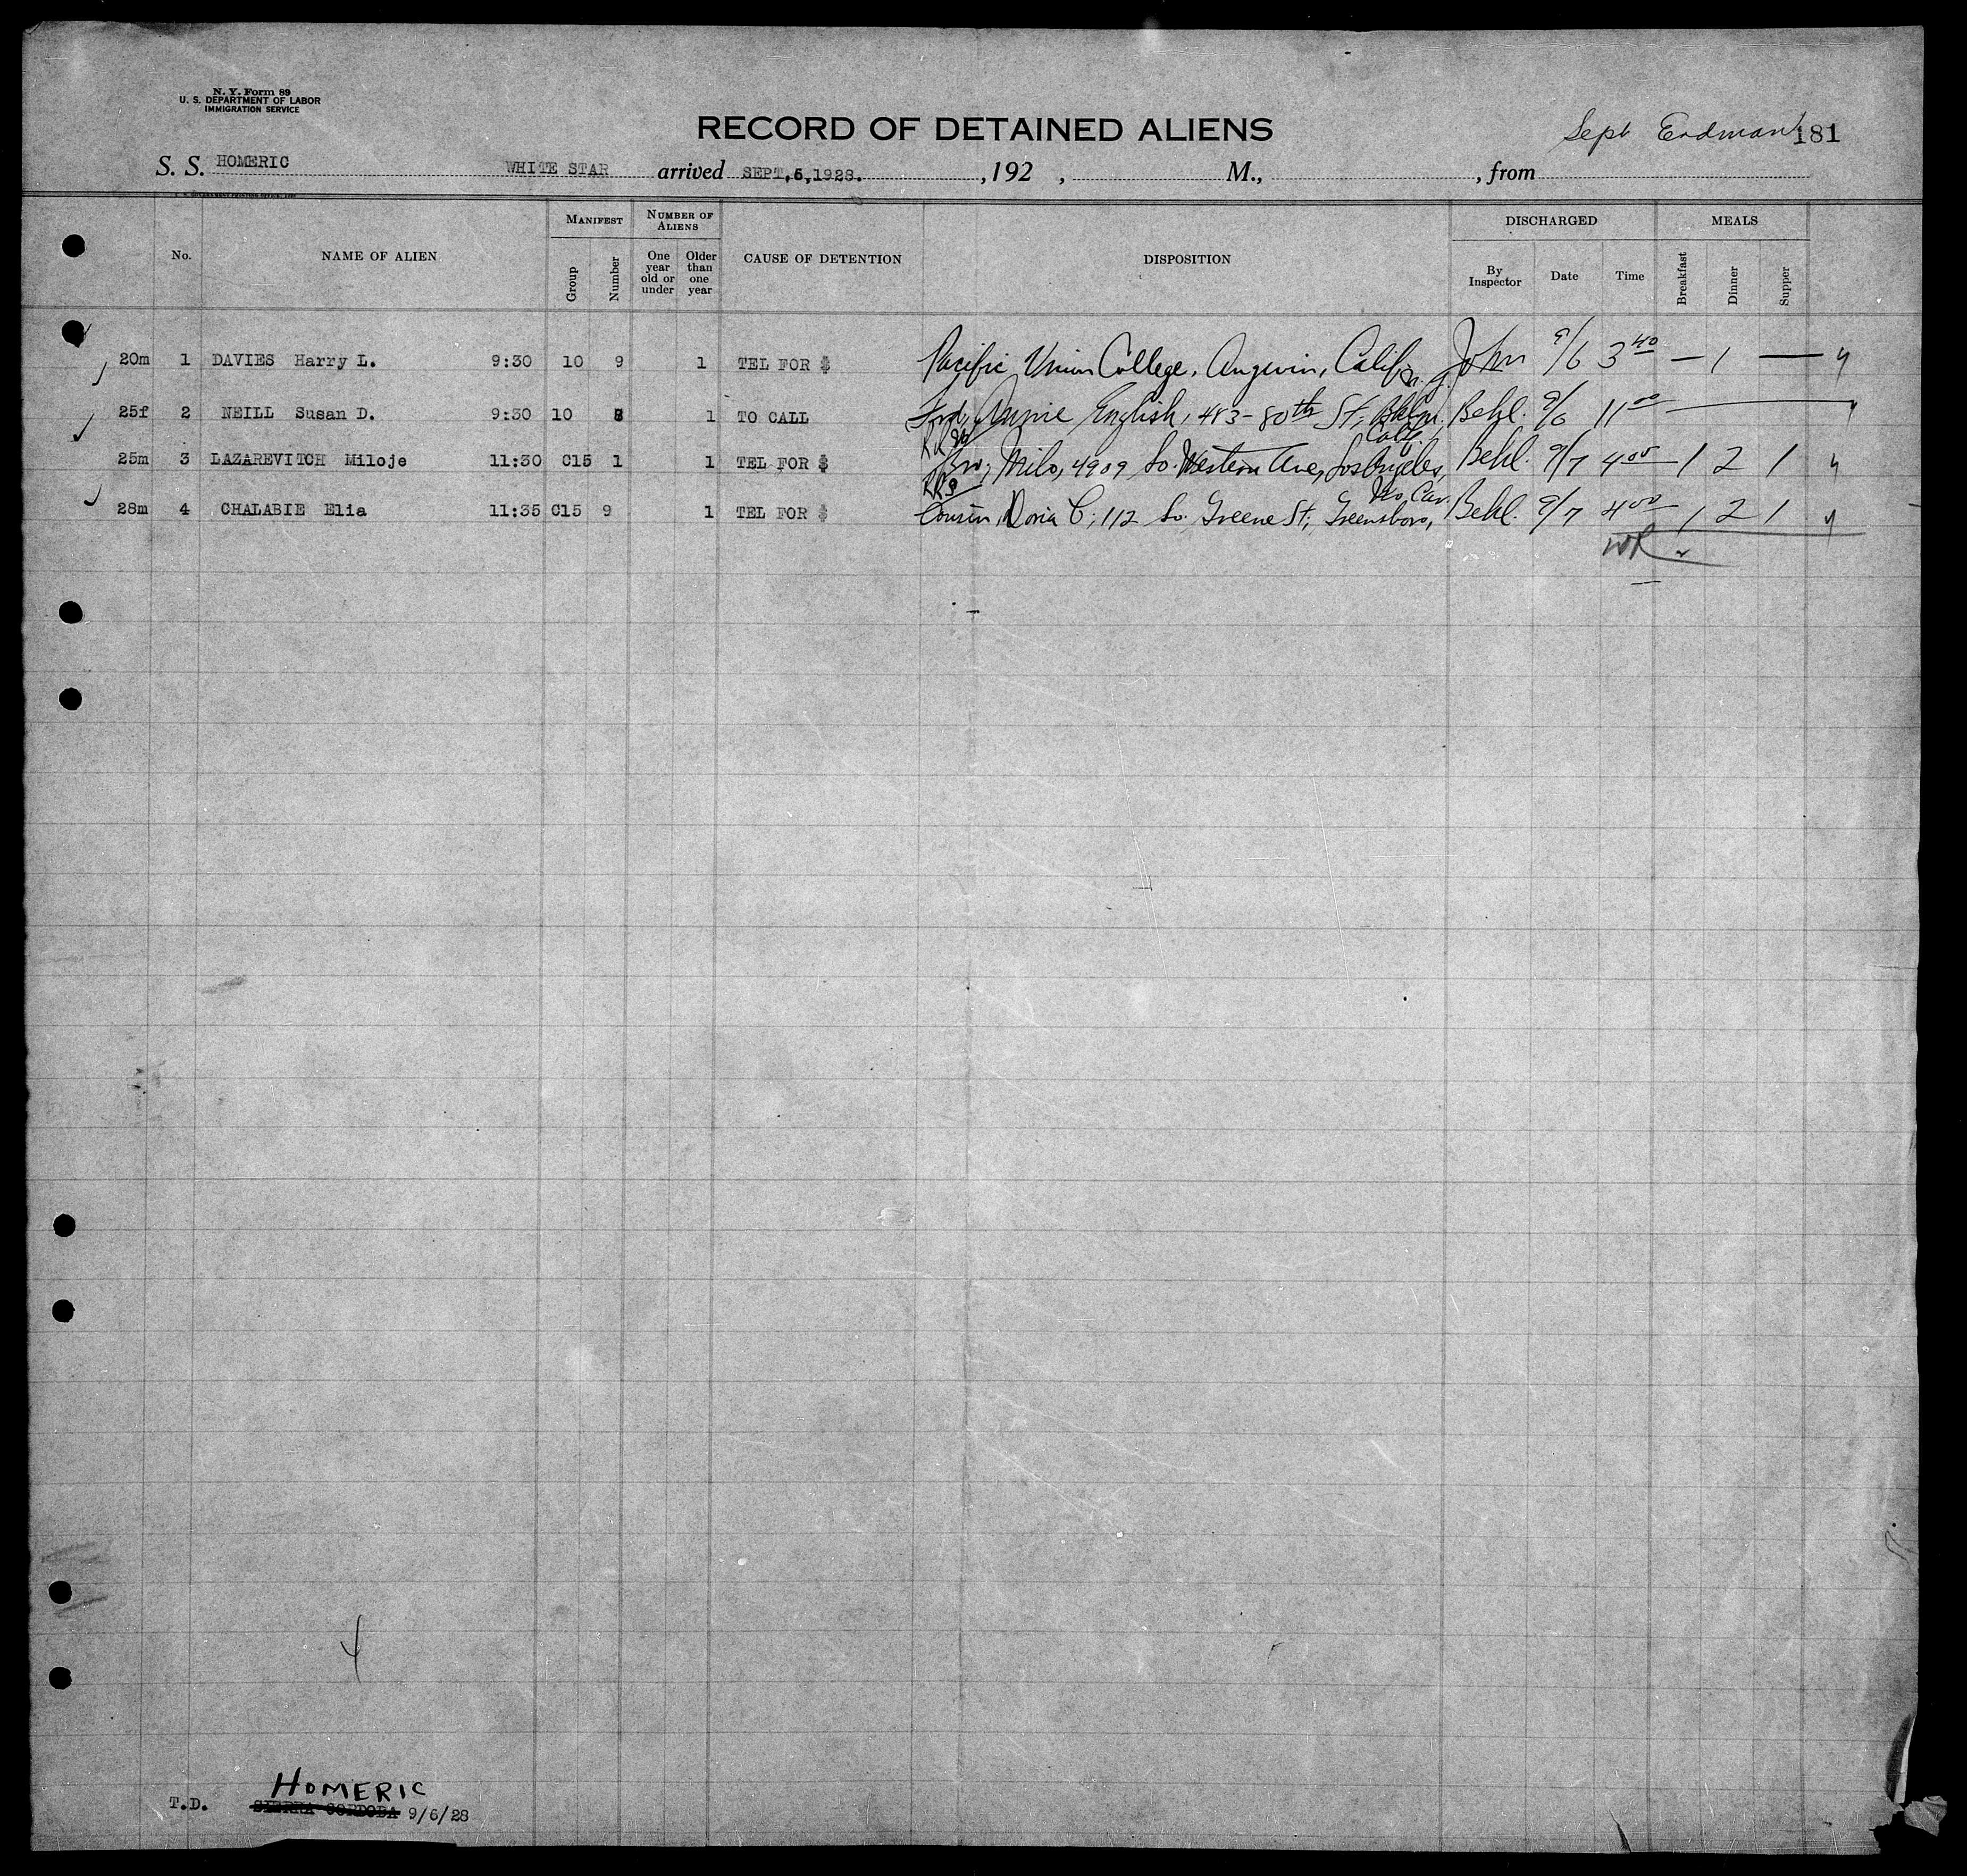 N. Y. Form 89
U. S. DEPARTMENT OF LABOR
IMMIGRATION SERVICE
RECORD OF DETAINED ALIENS
Sept Erdman 181
S. S. HOMERIC WHITE STAR arrived SEPT.5,1928. , 192 , M., , from
No. NAME OF ALIEN MANIFEST Group Number NUMBER OF ALIENS One year old or under Older than one year CAUSE OF DETENTION DISPOSITION DISCHARGED By Inspector Date Time MEALS Breakfast Dinner Supper
20m 1 DAVIES Harry L. 9:30 10 9 1 TEL FOR $ Pacific Union College, Angwin, Calif. John 9/6 3 40 — 1 —
25f 2 NEILL Susan D. 9:30 10 8 1 TO CALL Frd, Annie English, 483-80th St, Bklyn, Behl. 9/6 11 00
Calif.
25m 3 LAZAREVITCH Miloje 11:30 C15 1 1 TEL FOR $ Bro, Milo, 4909 So. Western Ave, Los Angeles, Behl. 9/7 4 00 1 2 1
No. Car.
28m 4 CHALABIE Elia 11:35 C15 9 1 TEL FOR $ Cousin, Doria C, 112 So. Greene St, Greensboro, Behl. 9/7 4 00 1 2 1
WR
4
HOMERIC
T.D. SIERRA CORDOBA 9/6/28